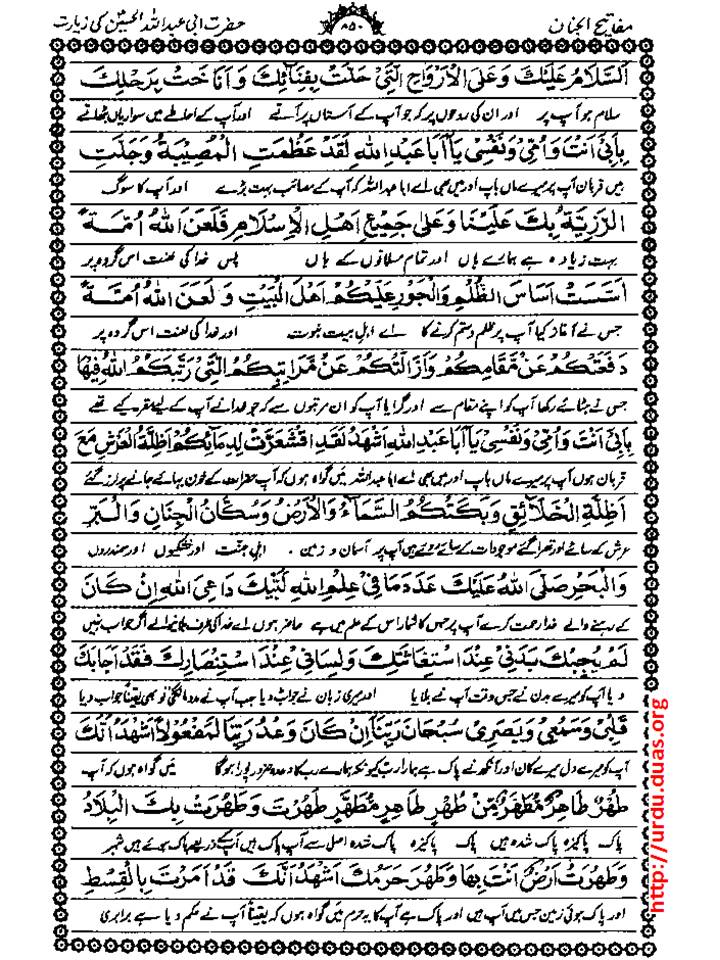 مفاتیح الجنان
۸۵۰
حضرت ابی عبداللہ الحسینؑ کی زیارت
اَلسَّلَامُ عَلَيْكَ وَعَلَى الْاَرْوَاحِ الَّتِيْ حَلَّتْ بِفِنَآئِكَ وَ اَنَاخَتْ بِرَحْلِكَ
سلام ہو آپ پر اور ان کی روحوں پر کہ جو آپ کے آستاں پر آتے اور آپ کے احاطے میں سواریاں بٹھاتے
بِاَبِيْ اَنْتَ وَ اُمِّيْ وَ نَفْسِيْ يَآ اَبَا عَبْدِ اللهِ لَقَدْ عَظُمَتِ الْمُصِيْبَةُ وَ جَلَّتِ
ہیں قربان آپ پر میرے ماں باپ اور میں بھی اے ابا عبداللہ کہ آپ کے مصائب بہت بڑے اور آپ کا سوگ
الرَّزِيَّةُ بِكَ عَلَيْنَا وَ عَلٰى جَمِيْعِ اَهْلِ الْاِسْلَامِ فَلَعَنَ اللهُ اُمَّةً
بہت زیادہ ہے ہمارے ہاں اور تمام مسلمانوں کے ہاں پس خدا کی لعنت اس گروہ پر
اَسَّسَتْ اَسَاسَ الظُّلْمِ وَ الْجَوْرِ عَلَيْكُمْ اَهْلَ الْبَيْتِ وَ لَعَنَ اللهُ اُمَّةً
جس نے آغاز کیا آپ پر ظلم و ستم کرنے کا اے اہل بیت نبوت اور خدا کی لعنت اس گروہ پر
دَفَعَتْكُمْ عَنْ مَّقَامِكُمْ وَ اَزَالَتْكُمْ عَنْ مَّرَاتِبِكُمُ الَّتِيْ رَتَّبَكُمُ اللهُ فِيْهَا
جس نے ہٹائے رکھا آپ کو اپنے مقام سے اور گرایا آپ کو ان مرتبوں سے کہ جو خدا نے آپ کے لیے مقرر کیے تھے
بِاَبِيْ اَنْتَ وَ اُمِّيْ وَ نَفْسِيْ يَآ اَبَا عَبْدِ اللهِ اَشْهَدُ لَقَدِ اقْشَعَرَّتْ لِدِمَآئِكُمْ اَظِلَّةُ الْعَرْشِ مَعَ
قربان ہوں آپ پر میرے ماں باپ اور میں بھی اے ابا عبداللہ میں گواہ ہوں کہ آپ حضرات کے خون بہائے جانے پر لرز گئے
اَظِلَّةِ الْخَلَآئِقِ وَ بَكَتْكُمُ السَّمَآءُ وَ الْاَرْضُ وَ سُكَّانُ الْجِنَانِ وَ الْبَرِّ
عرش کے سائے اور تھرا گئے موجودات کے سائے روئے ہیں آپ پر آسمان و زمین ۔ اہل جنت اور خشکیوں اور سمندروں
وَ الْبَحْرِ صَلَّى اللهُ عَلَيْكَ عَدَدَ مَا فِيْ عِلْمِ اللهِ لَبَّيْكَ دَاعِيَ اللهِ اِنْ كَانَ
کے رہنے والے خدا رحمت کرے آپ پر جس کا شمار اس کے علم میں ہے حاضر ہوں اے خدا کی طرف بلانے والے اگر جواب نہیں
لَمْ يُجِبْكَ بَدَنِيْ عِنْدَ اسْتِغَاثَتِكَ وَ لِسَانِيْ عِنْدَ اسْتِنْصَارِكَ فَقَدْ اَجَابَكَ
دیا آپ کو میرے بدن نے جس وقت آپ نے بلایا اور میری زبان نے جواب دیا جب آپ نے مدد مانگی تو بھی یقیناً جواب دیا
قَلْبِيْ وَ سَمْعِيْ وَ بَصَرِيْ سُبْحَانَ رَبِّنَآ اِنْ كَانَ وَعْدُ رَبِّنَا لَمَفْعُوْلًا اَشْهَدُ اَنَّكَ
آپ کو میرے دل میرے کان اور آنکھ نے پاک ہے ہمارا رب کیونکہ ہمارے رب کا وعدہ ضرور پورا ہو گا میں گواہ ہوں کہ آپ
طُهْرٌ طَاهِرٌ مُّطَهَّرٌ مِّنْ طُهْرٍ طَاهِرٍ مُّطَهَّرٍ طَهُرْتَ وَ طَهُرَتْ بِكَ الْبِلَادُ
پاک پاکیزہ پاک شدہ ہیں پاک پاکیزہ پاک شدہ اصل سے آپ پاک ہیں آپکے ذریعے پاک ہوئے ہیں شہر
وَ طَهُرَتْ اَرْضٌ اَنْتَ بِهَا وَ طَهُرَ حَرَمُكَ اَشْهَدُ اَنَّكَ قَدْ اَمَرْتَ بِالْقِسْطِ
اور پاک ہوئی زمین جس میں آپ ہیں اور پاک ہے آپ کا حرم میں گواہ ہوں کہ یقیناً آپ نے حکم دیا ہے برابری
http://urdu.duas.org